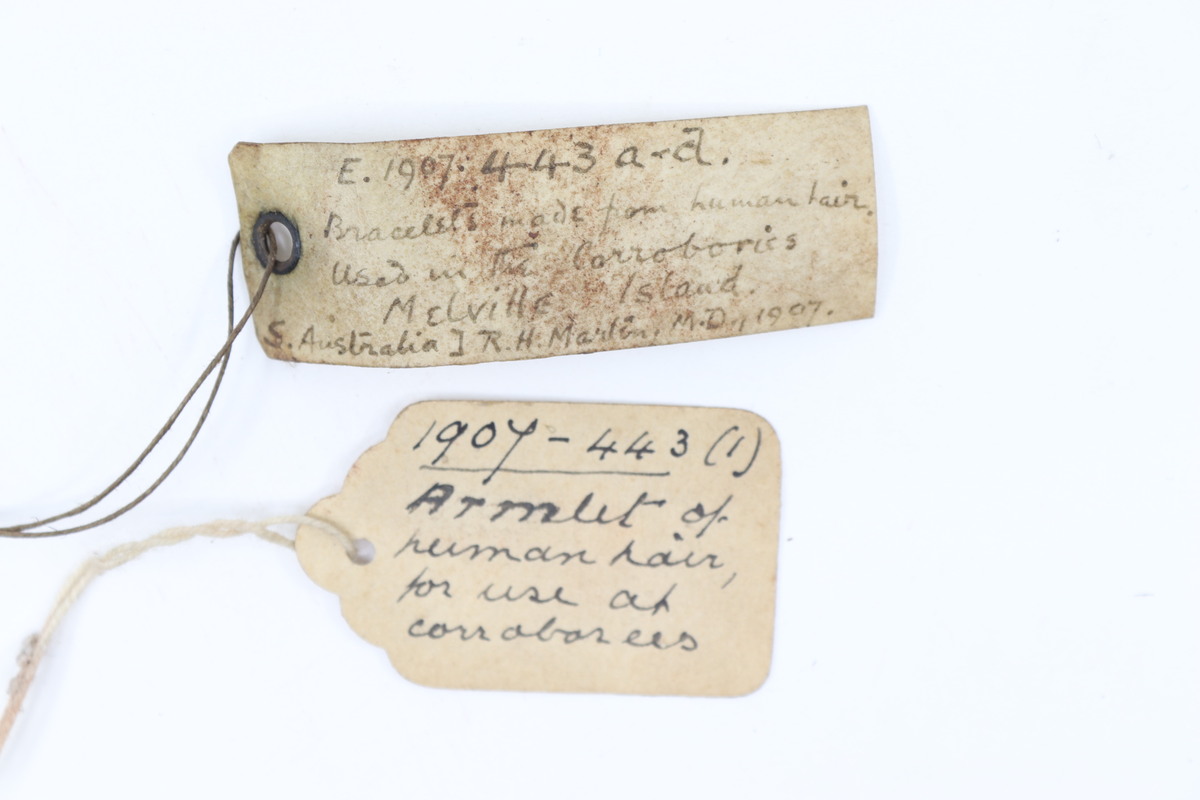 E. 1907. 443 a-d.
Bracelets made from human hair.
Used in the Corrobories
Melville Island.
S. Australia] R.H. Martin, M.D., 1907.
1907 - 443 (1)
Armlet of
human hair,
for use at
corroborees